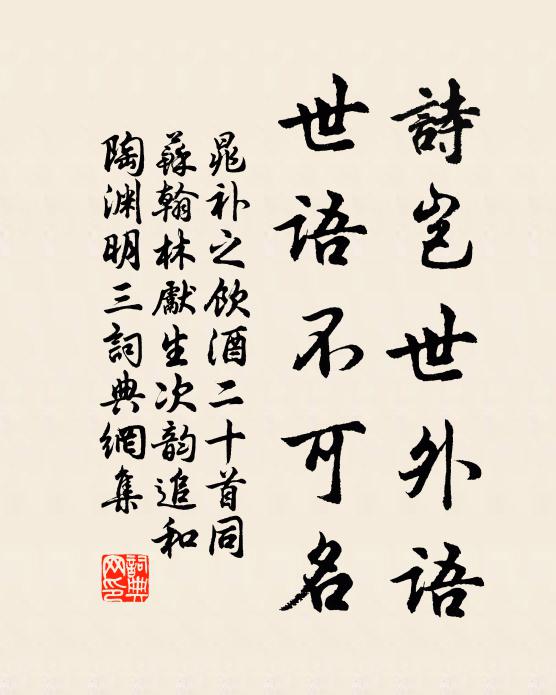 詩豈世外語
世語不可名
晁补之飲酒二十首同
蘇翰林獻生次韵追和
陶渊明三詞典網集
詞典
网印